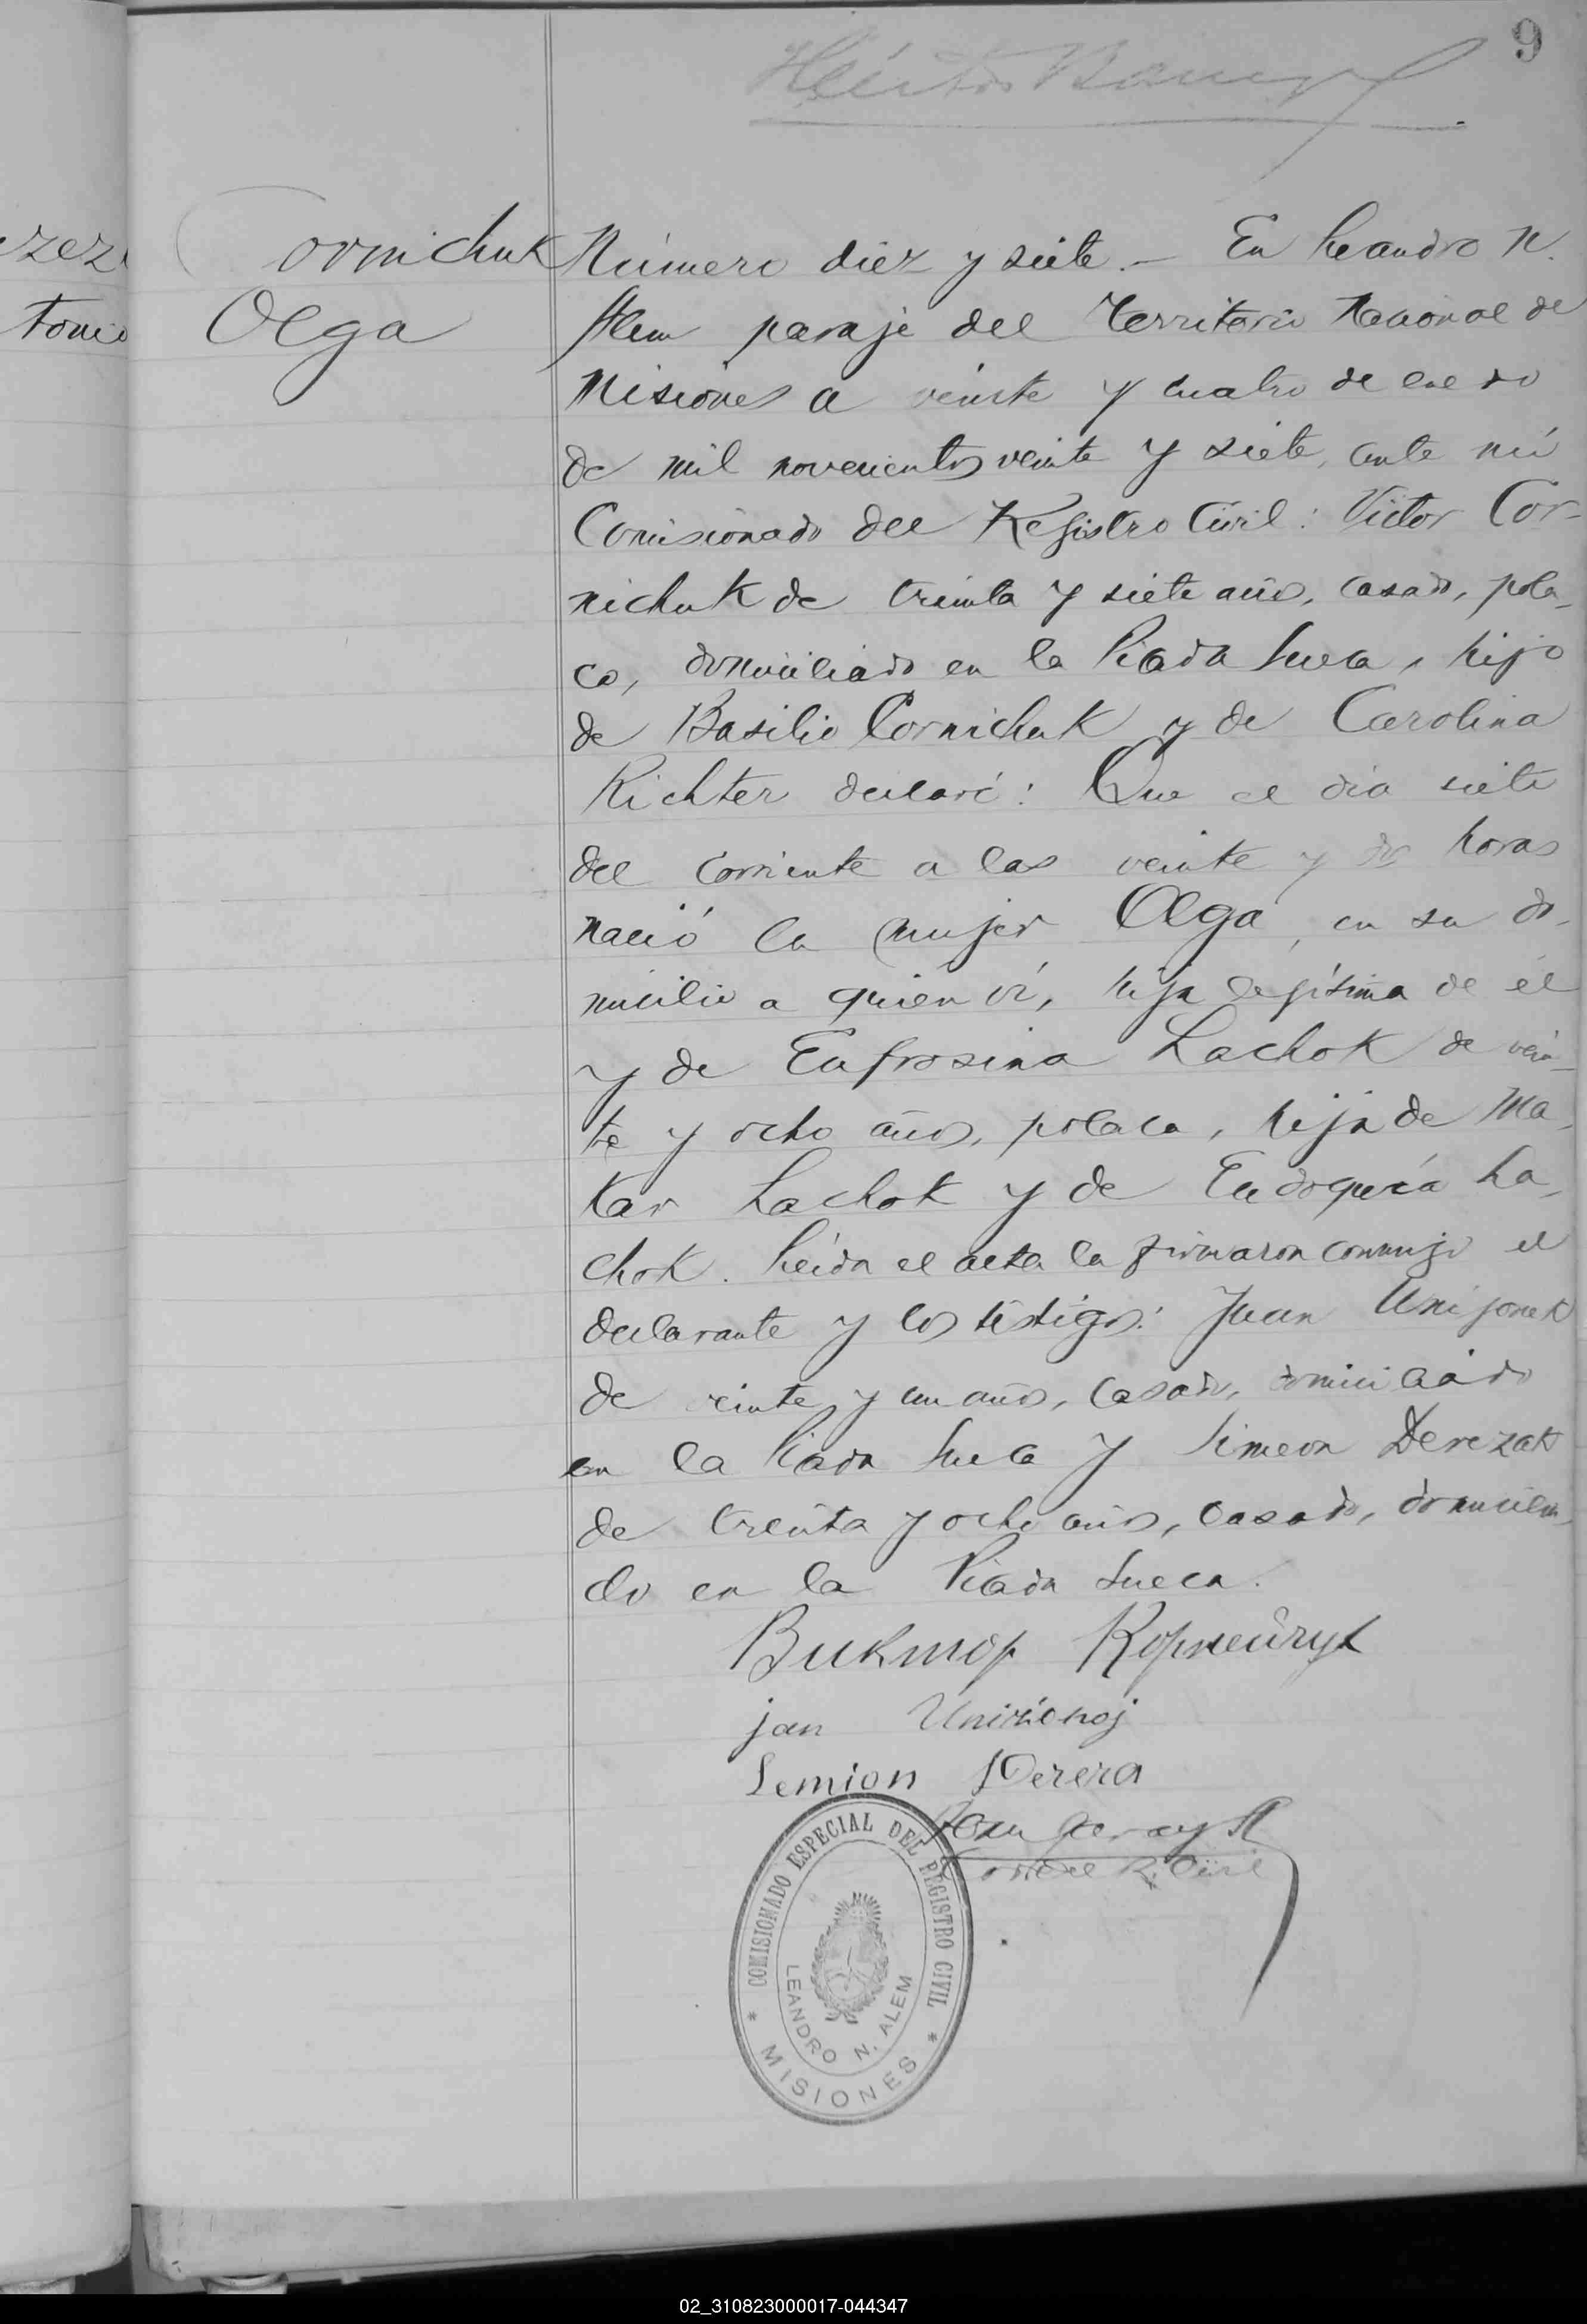 9
Cornichuk
Olga
Número diez y siete.– En Leandro N.
Alem paraje del Territorio Nacional de
Misiones a veinte y cuatro de enero
de mil novecientos veinte y siete, ante mí
Comisionado del Registro Civil: Victor Cor-
nichuk de treinta y siete años, casado, pola-
co, domiciliado en la Picada Sueca, hijo
de Basilio Cornichuk y de Carolina
Richter declaró: Que el día siete
del corriente a las veinte y dos horas
nació la mujer Olga, en su do-
micilio a quien ví, hija legítima de él
y de Eufrosina Lachok de vein-
te y ocho años, polaca, hija de Ma-
kar Lachok y de Eudoquéa La-
chok. Leída el acta la firmaron conmigo el
declarante y los testigos: Juan Unijonek
de veinte y un años, casado, domiciliado
en la Picada Sueca y Simeon Derezak
de treinta y ocho años, casado, domicilia-
do en la Picada Sueca.
Виктор Корнейчук
jan
Semion Derera
COMISIONADO ESPECIAL DEL REGISTRO CIVIL
LEANDRO N. ALEM
* MISIONES *
ezez
tonio
02_310823000017-044347